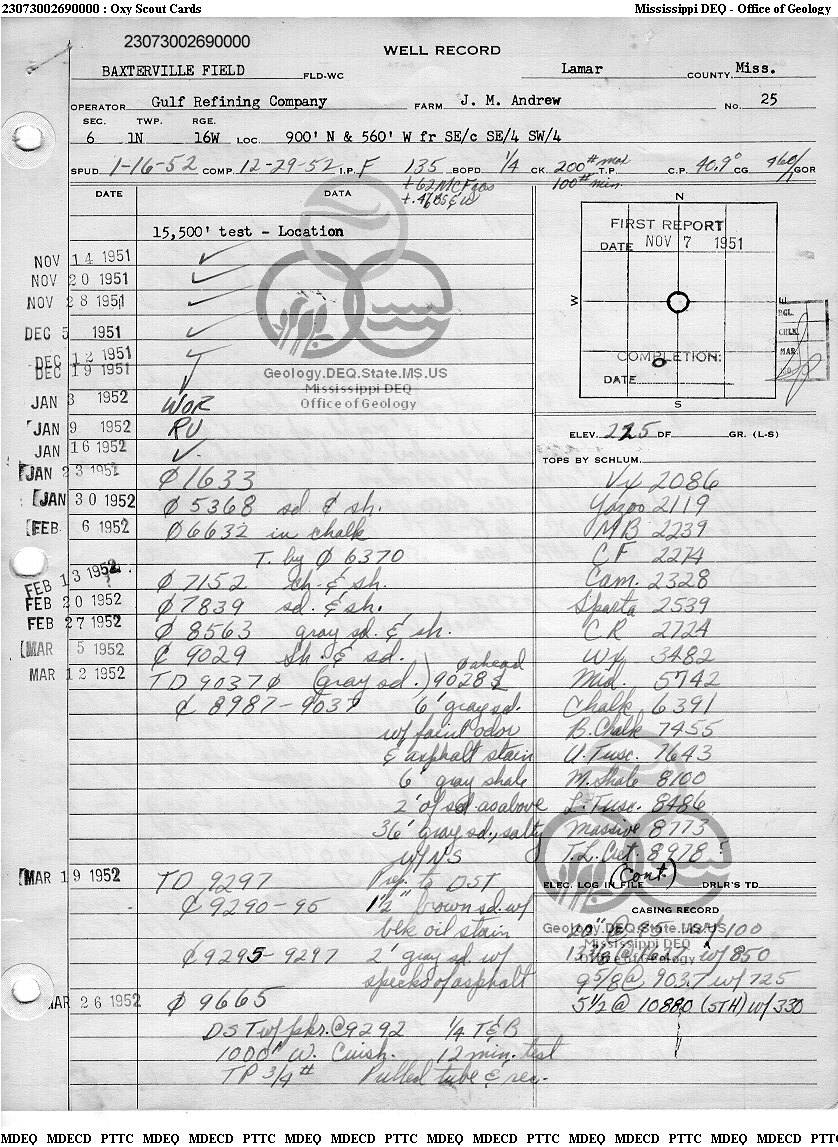 23073002690000 : Oxy Scout Cards
Mississippi DEQ - Office of Geology
23073002690000
WELL RECORD
BAXTERVILLE FIELD FLD-WC Lamar COUNTY, Miss.
OPERATOR Gulf Refining Company FARM J. M. Andrew No. 25
SEC. TWP. RGE.
6 1N 16W LOC. 900' N & 560' W fr SE/c SE/4 SW/4
SPUD 1-16-52 COMP. 12-29-52 I.P. F 135 BOPD 1/4 CK. 200# T.P. C.P. 40.9° CG 460/1 GOR
100# min.
DATE DATA
15,500' test - Location
NOV 14 1951 ✓
NOV 20 1951 ✓
NOV 28 1951 ✓
DEC 5 1951 ✓
DEC 12 1951 ✓
DEC 19 1951
JAN 3 1952 WOR
JAN 9 1952 RU
JAN 16 1952 ✓
JAN 23 1952 ₵ 1633
JAN 30 1952 ₵ 5368 sd. & sh.
FEB 6 1952 ₵ 6632 in chalk
T. by ₵ 6370
FEB 13 1952 ₵ 7152 ch. & sh.
FEB 20 1952 ₵ 7839 sd. & sh.
FEB 27 1952 ₵ 8563 gray sd. & sh.
MAR 5 1952 ₵ 9029 sh. & sd.
MAR 12 1952 TD 9037 ₵ (gray sd.) 9028 ₵ ahead
₵ 8987-9037 6' gray sd.
w/ faint odor
& asphalt stain
6' gray shale
2' of sd as above
36' gray sd., salty
w/ NS
MAR 19 1952 TD 9297 Prep. to DST
₵ 9290-95 1'2" brown sd. w/
blk oil stain
₵ 9295-9297 2' gray sd w/
specks of asphalt
MAR 26 1952 ₵ 9665
DST w/ pkr. @ 9292 1/4 T & B
1000' W. Cush. 12 min. test
TP 3/4# Pulled tube & rec.
Geology.DEQ.State.MS.US
Mississippi DEQ
Office of Geology
N
FIRST REPORT
DATE NOV 7 1951
W
E
COMPLETION:
DATE
S
CHLK
MAR
ELEV. 225 DF GR. (L-S)
TOPS BY SCHLUM.
Vx 2086
Yazoo 2119
MB 2239
CF 2274
Cam. 2328
Sparta 2539
CR 2724
Wx 3482
Mid. 5742
Chalk 6391
B. Chalk 7455
U. Tusc. 7643
M. Shale 8100
L. Tusc. 8486
Massive 8773
T. L. Cret. 8978 ?
(Cont.)
ELEC. LOG IN FILE DRLR'S TD
CASING RECORD
20" @ w/ 100
13 3/8 @ w/ 850
9 5/8 @ 9037 w/ 725
5 1/2 @ 10880 (5TH) w/ 330
Geology.DEQ.State.MS.US
Mississippi DEQ
Office of Geology
MDEQ MDECD PTTC MDEQ MDECD PTTC MDEQ MDECD PTTC MDEQ MDECD PTTC MDEQ MDECD PTTC MDEQ MDECD PTTC